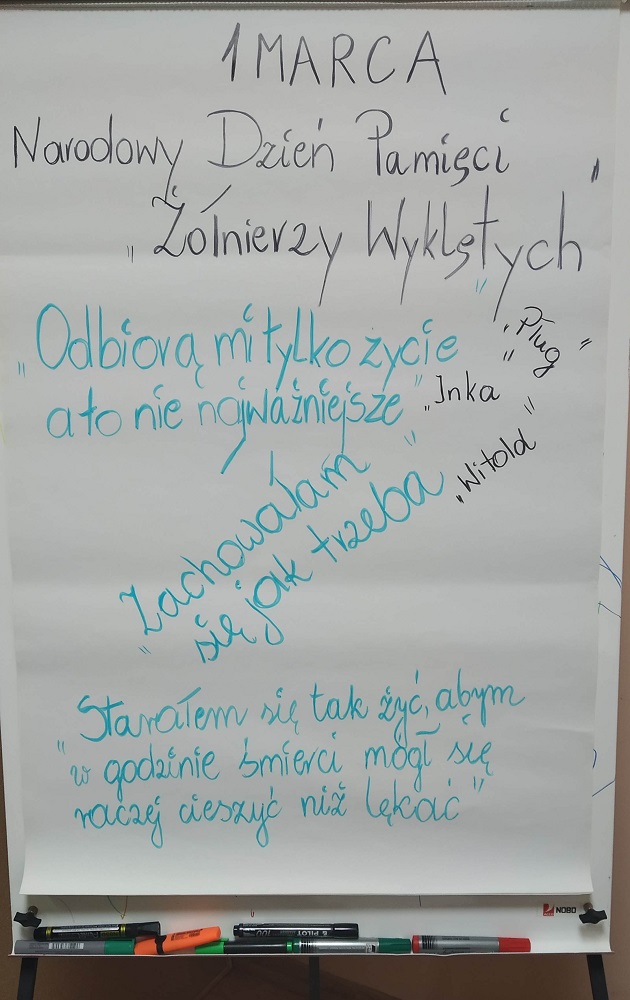 1 MARCA
Narodowy Dzień Pamięci
„Żółnierzy Wyklętych"
„Odbiorą mi tylko życie
a to nie najważniejsze"
„Pług"
„Inka"
„Witold"
„Zachowałam
się jak trzeba"
„Starałem się tak żyć, abym
w godzinie śmierci mógł się
raczej cieszyć niż lękać"
NOBO
PILOT 100